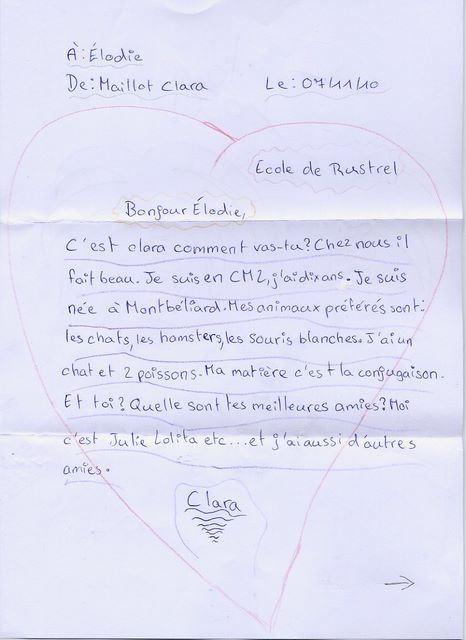 À: Élodie
De: Maillot Clara Le: 07/11/10
Ecole de Rustrel
Bonjour Élodie,
C'est clara comment vas-tu? Chez nous il
fait beau. Je suis en CM2, j'ai dix ans. Je suis
née à Montbéliard. Mes animaux préférés sont:
les chats, les hamsters, les souris blanches. J'ai un
chat et 2 poissons. Ma matière c'est la conjugaison.
Et toi? Quelle sont tes meilleures amies? Moi
c'est Julie Lolita etc... et j'ai aussi d'autres
amies.
Clara